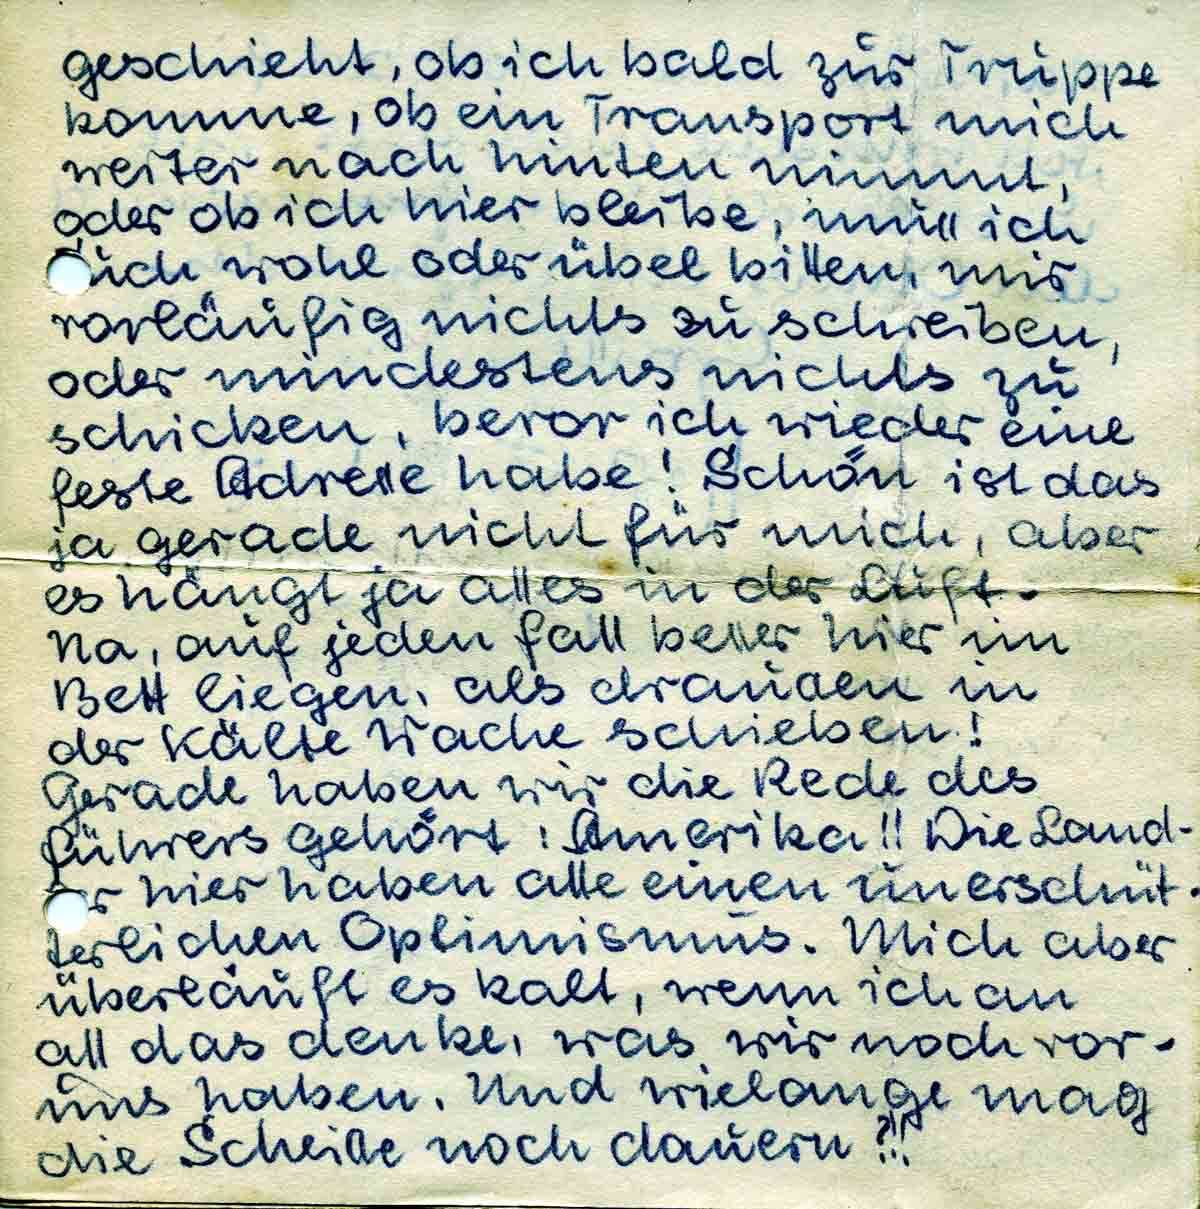 geschieht, ob ich bald zur Truppe
komme, ob ein Transport mich
weiter nach hinten nimmt,
oder ob ich hier bleibe, muss ich
Euch wohl oder übel bitten, mir
vorläufig nichts zu schreiben,
oder mindestens nichts zu
schicken, bevor ich wieder eine
feste Adresse habe! Schön ist das
ja gerade nicht für mich, aber
es hängt ja alles in der Luft.
Na, auf jeden Fall besser hier im
Bett liegen, als draussen in
der Kälte Wache schieben!
Gerade haben wir die Rede des
Führers gehört: Amerika!! Die Land-
ser hier haben alle einen unerschüt-
terlichen Optimismus. Mich aber
überläuft es kalt, wenn ich an
all das denke, was wir noch vor-
uns haben. Und wielange mag
die Scheisse noch dauern?!!